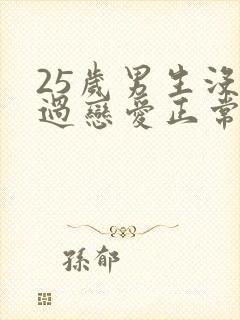 25歲男生沒
過戀愛正常
孫郁